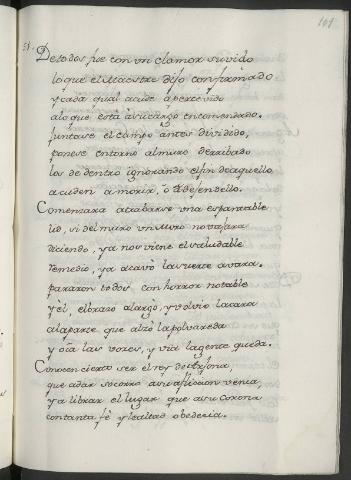 101
51.
De todos fue con vn clamor suvido
lo que el Maestre dijo confirmado
y cada qual acude apercevido
a lo que esta asu cargo encomendado.
Juntase el campo antes dividido,
ponese entorno al muro derribado
los de dentro ignorando el fin de aquello
acuden a morir, ò à defendello.
Comenzara atrabarse vna espantable
lid, si del muro vn Moro no
diciendo, ya nos viene el saludable
remedio, ya acavò la suerte avara.
pararon todos con horror notable
y èl, el brazo alargò, y volvio la cara
a la parte que alzò la polvareda
y oìa las voces, y vìa la gente queda.
Conocen cierto ser el rey de
que adar socorro asu aflicion venia,
y a librar el lugar que a su corona
con tanta fè y lealtad obedecia.